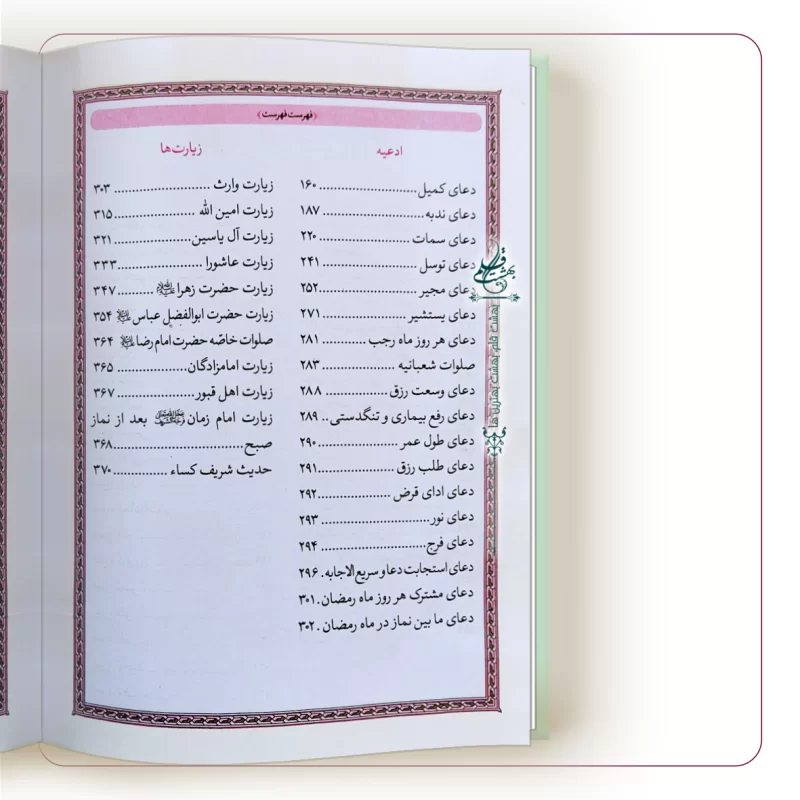 (فهرست فهرست)
ادعیه
دعای کمیل........................... ۱۶۰
دعای ندبه............................ ۱۸۷
دعای سمات ......................... ۲۲۰
دعای توسل .......................... ۲۴۱
دعای مجیر ...........................۲۵۲
دعای یستشیر ....................... ۲۷۱
دعای هر روز ماه رجب ............ ۲۸۱
صلوات شعبانیه .................... ۲۸۳
دعای وسعت رزق ................. ۲۸۸
دعای رفع بیماری و تنگدستی.. ۲۸۹
دعای طول عمر ......................۲۹۰
دعای طلب رزق .....................۲۹۱
دعای ادای قرض ....................۲۹۲
دعای نور.............................. ۲۹۳
دعای فرج............................. ۲۹۴
دعای استجابت دعا و سریع الاجابه. ۲۹۶
دعای مشترک هر روز ماه رمضان. ۳۰۱
دعای ما بین نماز در ماه رمضان . ۳۰۲
زیارت‌ها
زیارت وارث ........................... ۳۰۳
زیارت امین الله .......................۳۱۵
زیارت آل یاسین..................... ۳۲۱
زیارت عاشورا ........................۳۳۳
زیارت حضرت زهرا ..........۳۴۷
زیارت حضرت ابوالفضل عباس ۳۵۴
صلوات خاصّه حضرت امام رضا ۳۶۴
زیارت امامزادگان.................... ۳۶۵
زیارت اهل قبور...................... ۳۶۷
زیارت امام زمان بعد از نماز
صبح....................................۳۶۸
حدیث شریف کساء ............... ۳۷۰
بهشت قلم
بهشت قلم، بهشت بهترین ها